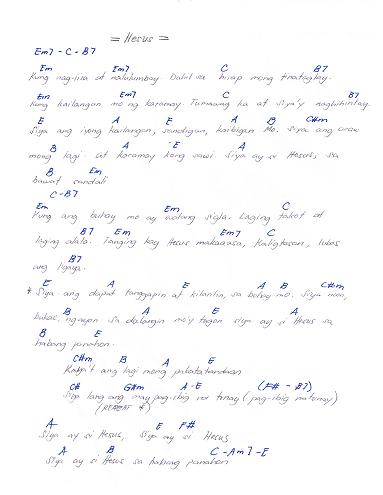 = Hesus =
Em7 - C - B7
Em Em7 C B7
Kung nag-iisa at nalulumbay. Dahil sa hirap mong tinataglay.
Em Em7 C B7
Kung kailangan mo ng karamay. Tumawag ka at Siya'y naghihintay
E A E A B C#m
Siya ang iyong kailangan, sandigan, kaibigan Mo. Siya ang araw
B A E A
mong lagi. at karamay kong sawi Siya ay si Hesus, sa
B Em
bawat sandali
C - B7
Em Em C
Kung ang buhay mo ay walang sigla. Laging takot at
B7 Em Em7 C
laging alala. Tanging kay Hesus makaaasa, Kaligtasan, lubos
B7
ang ligaya.
E A E A B C#m
* Siya ang dapat tanggapin at kilanlin, sa buhay mo. Siya noon,
B A E A
bukas, ngayon sa dalangin mo'y tugon siya ay si Hesus sa
B E
habang panahon.
C#m B A E
Kaya't ang lagi mong pakatatandaan
C# G#m A - E (F# - B7)
Siya lang ang may pag-ibig na tunay (pag-ibig na tunay)
(REPEAT *)
A E F#
Siya ay si Hesus, Siya ay si Hesus
A B C - Am7 - E
Siya ay si Hesus sa habang panahon